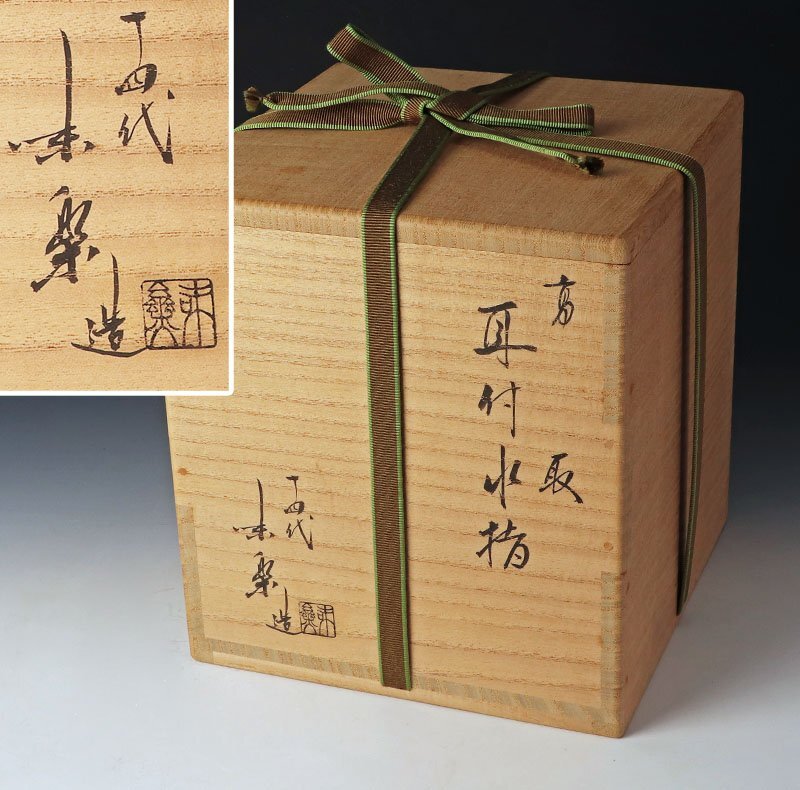 高取
耳付水指
十四代
味楽造
十四代
味楽造